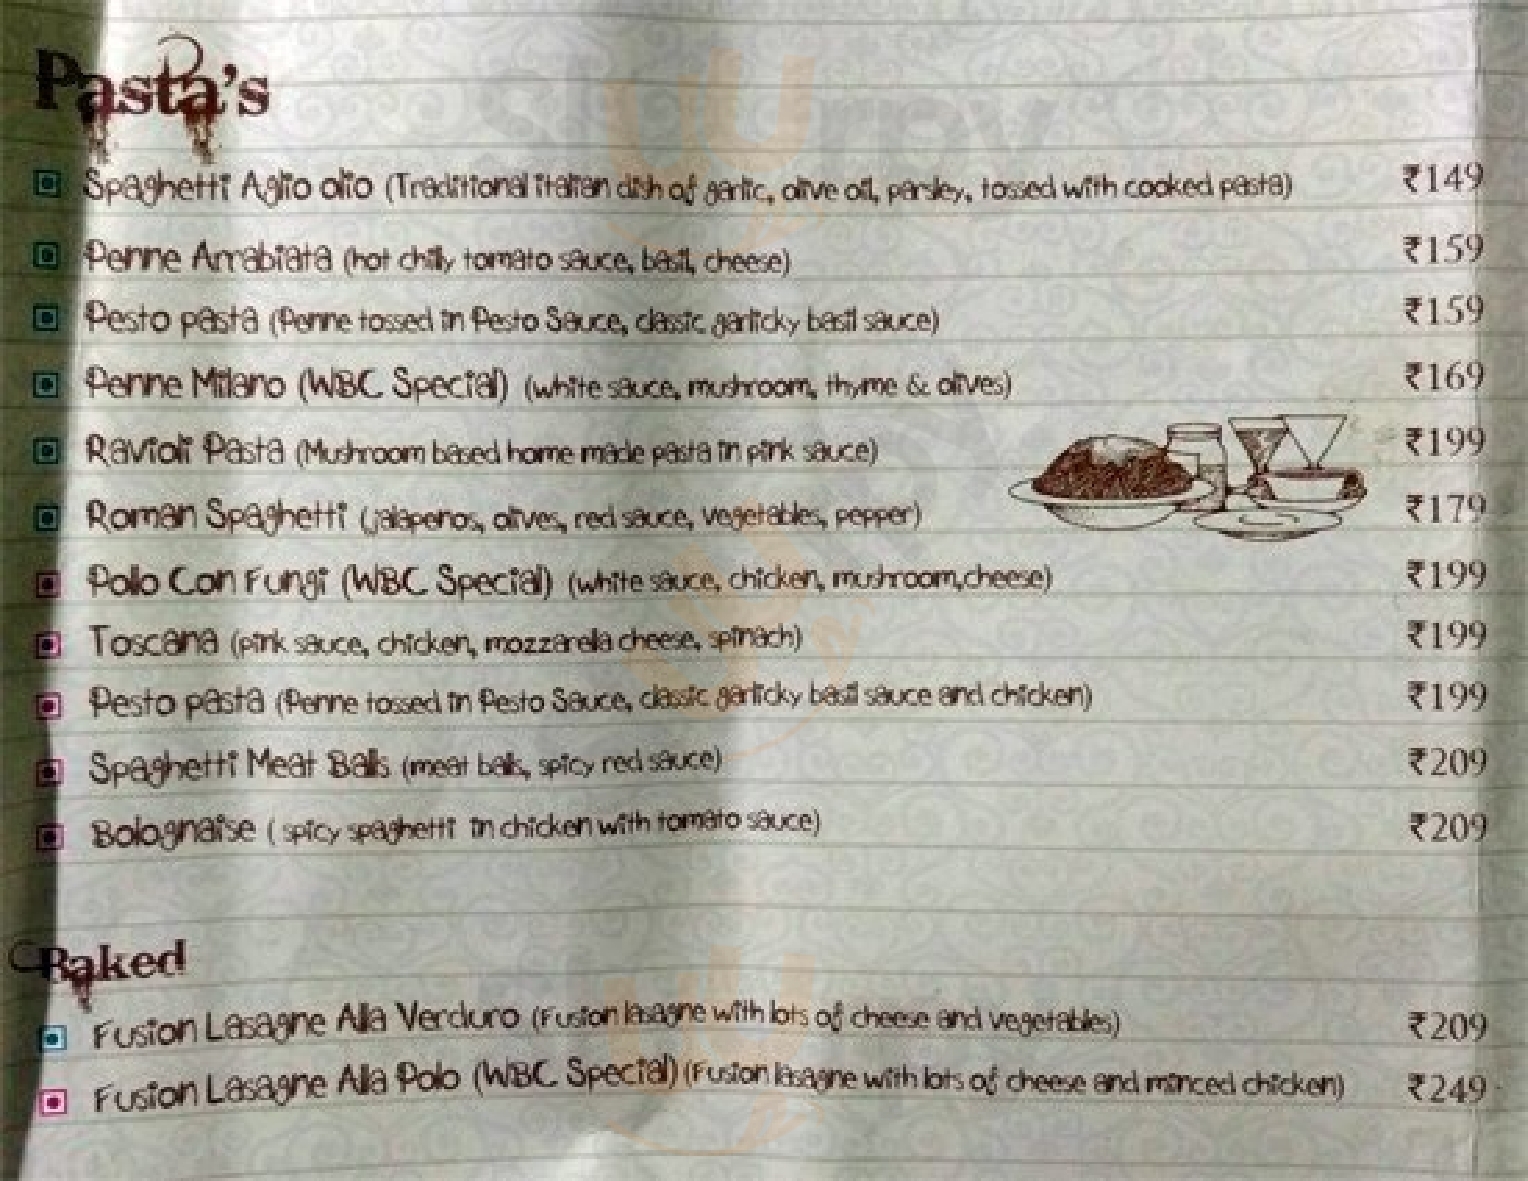 Pasta's
Spaghetti Aglio olio (Traditional italian dish of garlic, olive oil, parsley, tossed with cooked pasta) ₹149
Penne Arrabiata (hot chilly tomato sauce, basil, cheese) ₹159
Pesto pasta (Penne tossed in Pesto Sauce, classic garlicky basil sauce) ₹159
Penne Milano (WBC Special) (white sauce, mushroom, thyme & olives) ₹169
Ravioli Pasta (Mushroom based home made pasta in pink sauce) ₹199
Roman Spaghetti (jalapenos, olives, red sauce, vegetables, pepper) ₹179
Polo Con Fungi (WBC Special) (white sauce, chicken, mushroom,cheese) ₹199
Toscana (pink sauce, chicken, mozzarella cheese, spinach) ₹199
Pesto pasta (Penne tossed in Pesto Sauce, classic garlicky basil sauce and chicken) ₹199
Spaghetti Meat Balls (meat balls, spicy red sauce) ₹209
Bolognaise ( spicy spaghetti in chicken with tomato sauce) ₹209
Baked
Fusion Lasagne Alla Verduro (Fusion lasagne with lots of cheese and vegetables) ₹209
Fusion Lasagne Alla Polo (WBC Special) (Fusion lasagne with lots of cheese and minced chicken) ₹249